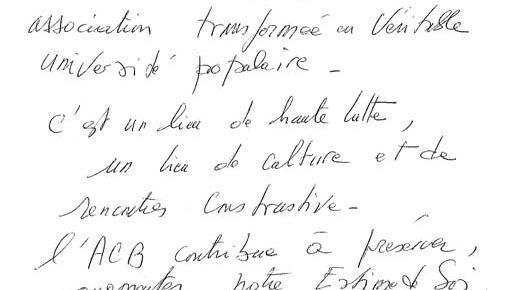 association transformée en Véritable
Université populaire -
C'est un lieu de haute lutte,
un lieu de culture et de
rencontres Constructive -
l'ACB contribue à préserver,
augmenter notre Estime de Soi